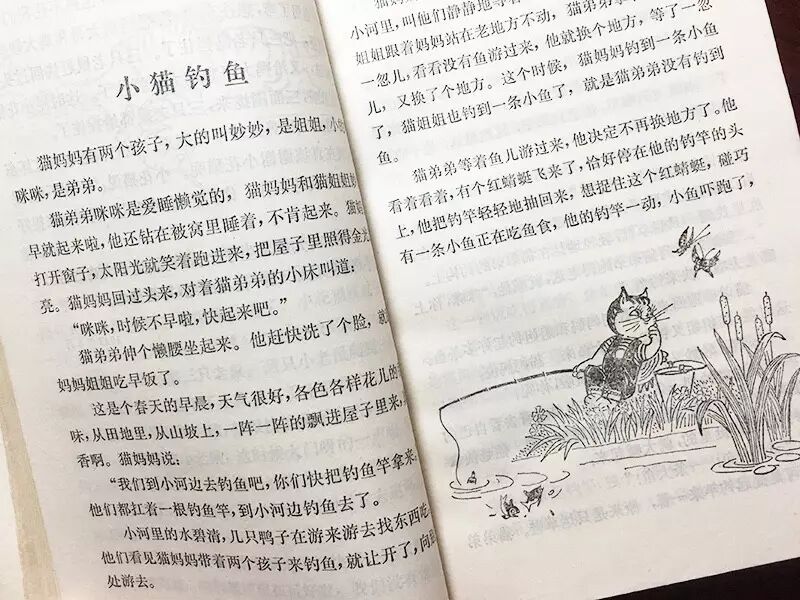 小猫钓鱼
猫妈妈有两个孩子，大的叫妙妙，是姐姐，小
咪咪，是弟弟。
猫弟弟咪咪是爱睡懒觉的，猫妈妈和猫姐姐
早就起来啦，他还钻在被窝里睡着，不肯起来。猫
打开窗子，太阳光就笑着跑进来，把屋子里照得金光
亮。猫妈妈回过头来，对着猫弟弟的小床叫道：
“咪咪，时候不早啦，快起来吧。”
猫弟弟伸个懒腰坐起来。他赶快洗了个脸，就
妈妈姐姐吃早饭了。
这是个春天的早晨，天气很好，各色各样花儿的
味，从田地里，从山坡上，一阵一阵的飘进屋子里来，
香啊。猫妈妈说：
“我们到小河边去钓鱼吧，你们快把钓鱼竿拿来
他们都扛着一根钓鱼竿，到小河边钓鱼去了。
小河里的水碧清，几只鸭子在游来游去找东西吃
他们看见猫妈妈带着两个孩子来钓鱼，就让开了，向
处游去。
小河里，叫他们静静地等
姐姐跟着妈妈站在老地方不动，猫弟弟等了
一忽儿，看看没有鱼游过来，他就换个地方，等了一忽
儿，又换了个地方。这个时候，猫妈妈钓到一条小鱼
了，猫姐姐也钓到一条小鱼了，就是猫弟弟没有钓到
鱼。
猫弟弟等着鱼儿游过来，他决定不再换地方了。他
看着看着，有个红蜻蜓飞来了，恰好停在他的钓竿的头
上，他把钓竿轻轻地抽回来，想捉住这个红蜻蜓，碰巧
有一条小鱼正在吃鱼食，他的钓竿一动，小鱼吓跑了，